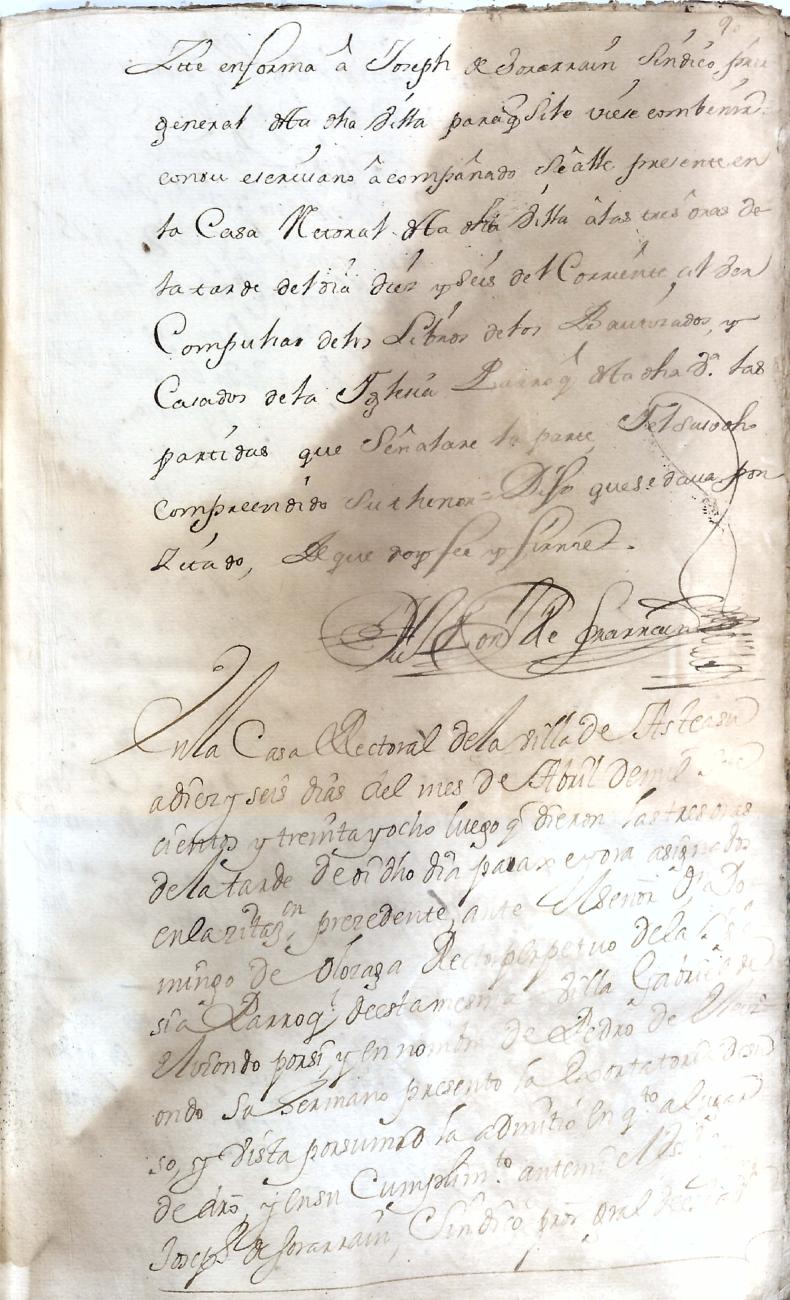 Zite enforma â Joseph de Sorarrain Sindico
general della dha Villa paraq̃ si le viese combenir
consu escrivano âcompañado se alle presente en
la Casa Retoral della dha Villa âlas tres oras de
la tarde del dia diez y seis del Corriente al Ver
Compulsar delos Libros delos Bautizados, y
Casados dela Iglesia Parroql della dha Va las
partidas que señalare la parte, Iel susodho
compreendido su thenor = Dijo quese dava por
Zitado, De que doy fee y firme.
de Sorarrain
En la Casa Rectoral dela villa de Asteasu
adiez y seis dias del mes de Abril demil
cientos y treinta yocho luego q̃ dieron las tres oras
dela tarde de dicho dia para y ora asignados
enla zitazon prezedente, ante el señor Dn Do
mingo de Olozaga Rector perpetuo dela
sia Parroql deesta mesma villa
Elizondo porsi, y en nombre de Pedro de Eliz
ondo su hermano presento la
so, y vista porsumrd la admitio en qto a lugar
de dro, y ensu Cumplimto antemi el
Joseph de Sorarrain, Sindico pror gral